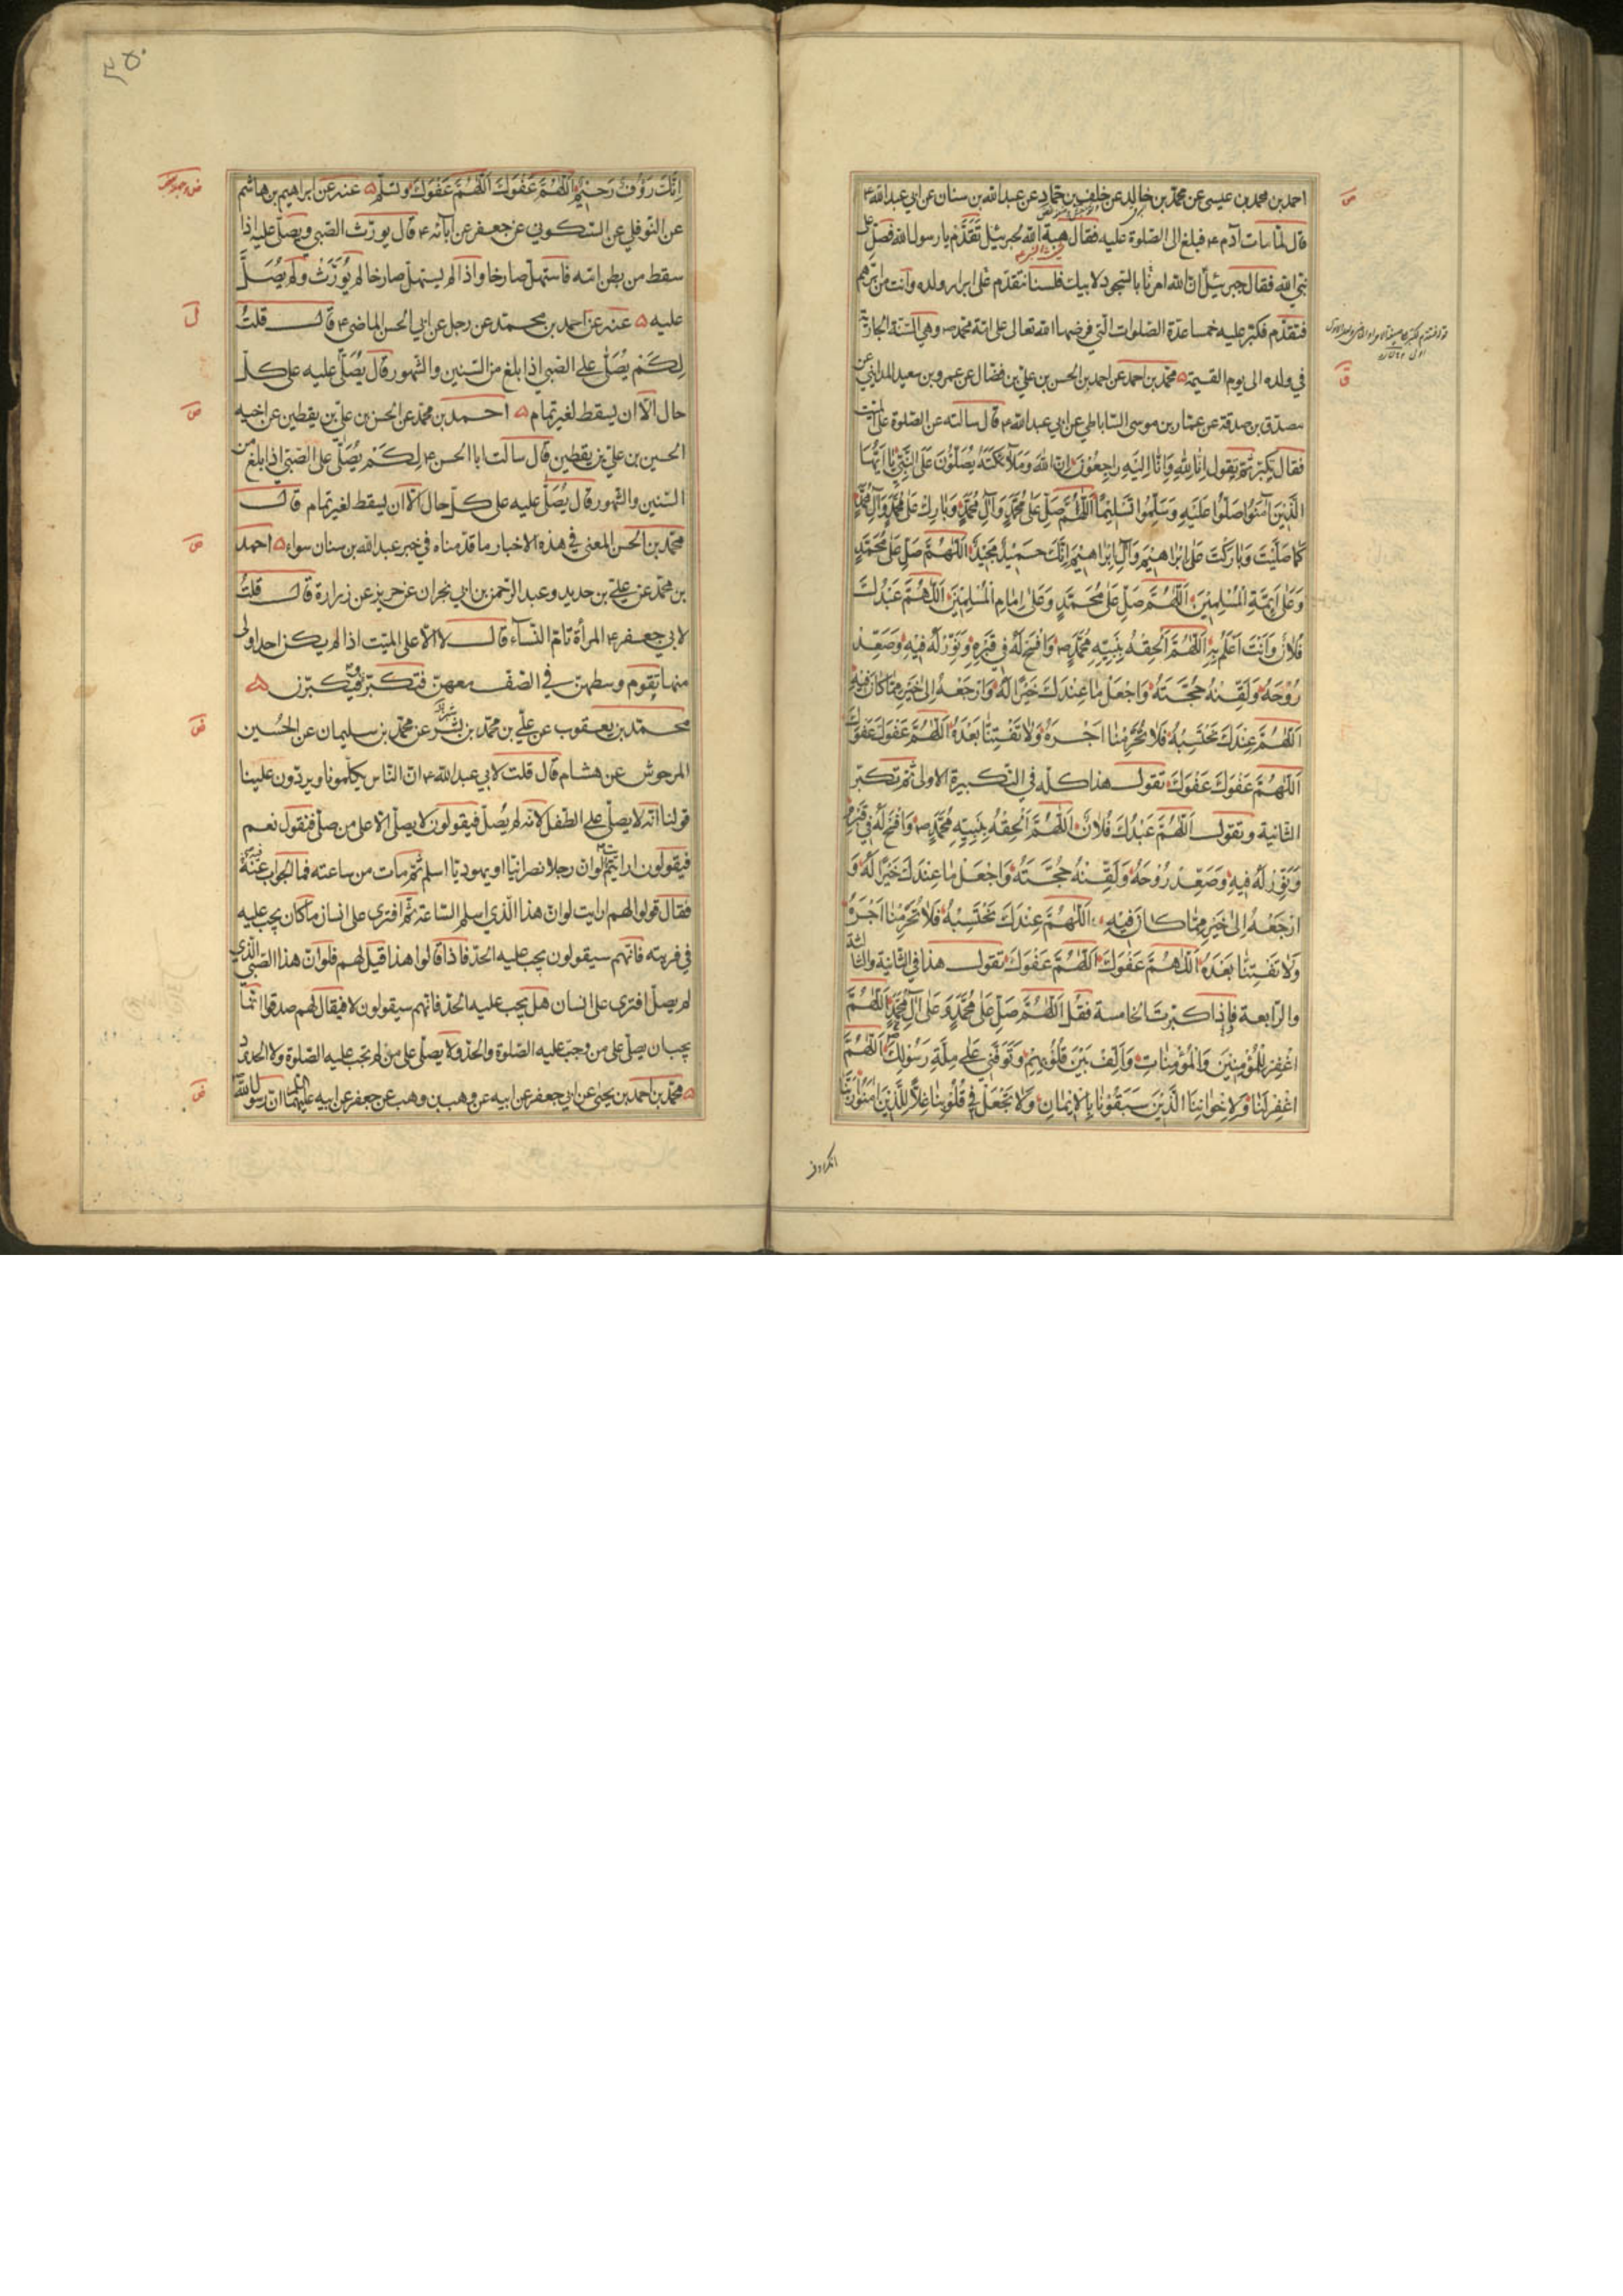 احمد بن محمد بن عيسى عن محمّد بن خالد عن خلف بن حمّاد عن عبد الله بن سنان عن ابي عبد الله ع
قال لمّا مات آدم ع فبلغ الى الصّلوة عليه فقال هبة الله لجبرئيل تَقَدَّم يا رسول الله فصلّ على
نبيّ الله فقال جبرئيل انّ الله امرنا بالسّجود لابيك فلسنا نتقدّم على ابرار ولده وانت من ابرّهم
فتقدّم فكبّر عليه خمسا عدّة الصّلوات الّتي فرضها الله تعالى على امّة محمّد ص وهي السّنّة الجارية
في ولده الى يوم القيمة ۵ محمّد بن احمد عن احمد بن الحسن بن عليّ بن فضّال عن عمرو بن سعيد المدايني عن
مصدّق بن صدقة عن عمّار بن موسى السّاباطي عن ابي عبد الله ع قال سالته عن الصّلوة على الميّت
فقال يكبّر ثمّ يقول اِنّا لِلّهِ وَاِنّا اِلَيْهِ راجِعُوْنَ اِنّ اللهَ وَمَلآئِكَتَهُ يُصَلُّوْنَ عَلَى النَّبِيِّ يا اَيُّهَا
الَّذِيْنَ آمَنُوا صَلُّوا عَلَيْهِ وَسَلِّمُوا تَسْلِيْمًا اَللّهُمَّ صَلِّ عَلى مُحَمَّدٍ وَآلِ مُحَمَّدٍ وَبارِكْ عَلى مُحَمَّدٍ وَآلِ مُحَمَّدٍ
كَما صَلَّيْتَ وَبارَكْتَ عَلى اِبْراهِيْمَ وَآلِ اِبْراهِيْمَ اِنَّكَ حَمِيْدٌ مَجِيْدٌ اَللّهُمَّ صَلِّ عَلى مُحَمَّدٍ
وَعَلى اَئِمَّةِ الْمُسْلِمِيْنَ اَللّهُمَّ صَلِّ عَلى مُحَمَّدٍ وَعَلى اِمامِ الْمُسْلِمِيْنَ اَللّهُمَّ عَبْدُكَ
فُلانٌ وَاَنْتَ اَعْلَمُ بِهِ اَللّهُمَّ اَلْحِقْهُ بِنَبِيِّهِ مُحَمَّدٍ ص وَافْسَحْ لَهُ فِي قَبْرِهِ وَنَوِّرْ لَهُ فِيْهِ وَصَعِّدْ
رُوْحَهُ وَلَقِّنْهُ حُجَّتَهُ وَاجْعَلْ ما عِنْدَكَ خَيْرًا لَهُ وَارْجِعْهُ اِلى خَيْرٍ مِمّا كانَ فِيْهِ
اَللّهُمَّ عِنْدَكَ نَحْتَسِبُهُ فَلا تَحْرِمْنا اَجْرَهُ وَلا تَفْتِنّا بَعْدَهُ اَللّهُمَّ عَفْوَكَ عَفْوَكَ
اَللّهُمَّ عَفْوَكَ عَفْوَكَ تقول هذا كلّه في التّكبيرة الاولى ثمّ تكبّر
الثانية وتقول اَللّهُمَّ عَبْدُكَ فُلانٌ اَللّهُمَّ اَلْحِقْهُ بِنَبِيِّهِ مُحَمَّدٍ ص وَافْسَحْ لَهُ فِي قَبْرِهِ
وَنَوِّرْ لَهُ فِيْهِ وَصَعِّدْ رُوْحَهُ وَلَقِّنْهُ حُجَّتَهُ وَاجْعَلْ ما عِنْدَكَ خَيْرًا لَهُ وَ
ارْجِعْهُ اِلى خَيْرٍ مِمّا كانَ فِيْهِ اَللّهُمَّ عِنْدَكَ نَحْتَسِبُهُ فَلا تَحْرِمْنا اَجْرَهُ
وَلا تَفْتِنّا بَعْدَهُ اَللّهُمَّ عَفْوَكَ اَللّهُمَّ عَفْوَكَ تقول هذا في الثانية والثالثة
والرّابعة فاذا كبّرت الخامسة فقل اَللّهُمَّ صَلِّ عَلى مُحَمَّدٍ وَعَلى آلِ مُحَمَّدٍ اَللّهُمَّ
اغْفِرْ لِلْمُؤْمِنِيْنَ وَالْمُؤْمِناتِ وَاَلِّفْ بَيْنَ قُلُوْبِهِمْ وَتَوَفَّنِي عَلى مِلَّةِ رَسُوْلِكَ اَللّهُمَّ
اغْفِرْ لَنا وَلاِخْوانِنَا الَّذِيْنَ سَبَقُوْنا بِالاِيْمانِ وَلا تَجْعَلْ فِي قُلُوْبِنا غِلاًّ لِلَّذِيْنَ امَنُوْا رَبَّنا
انك رؤف
۲۵۰
اِنَّكَ رَؤُفٌ رَحِيْمٌ اَللّهُمَّ عَفْوَكَ اَللّهُمَّ عَفْوَكَ وتسلّم ۵ عنه عن ابراهيم بن هاشم
عن النّوفلي عن السّكوني عن جعفر عن آبائه ع قال يورّث الصّبي ويصلّى عليه اذا
سقط من بطن امّه فاستهلّ صارخا واذا لم يستهلّ صارخا لم يُوَرَّثْ ولم يُصَلَّ
عليه ۵ عنه عن احمد بن محمّد عن رجل عن ابي الحسن الماضي ع قال قلتُ
لِكَمْ يُصَلّى على الصّبي اذا بلغ من السّنين والشّهور قال يُصَلّى عليه على كلّ
حال الاّ ان يسقط لغير تمام ۵ احمد بن محمّد عن الحسن بن عليّ بن يقطين عن اخيه
الحسين بن عليّ بن يقطين قال سالت ابا الحسن ع لِكَمْ يُصَلّى على الصّبيّ اذا بلغ من
السّنين والشّهور قال يُصَلّى عليه على كلّ حال الاّ ان يسقط لغير تمام قال
محمّد بن الحسن المعنى في هذه الاخبار ما قدّمناه في خبر عبد الله بن سنان سواء ۵ احمد
بن محمّد عن عليّ بن حديد وعبد الرّحمن بن ابي نجران عن حريز عن زرارة قال قلتُ
لابي جعفر ع المرأة تامّ النّسآء قال لا الاّ على الميّت اذا لم يكن احد اولى
منها تقوم وسطهنّ في الصّف معهنّ فتكبّر ويكبّرن ۵
محمّد بن يعقوب عن عليّ بن محمّد بن عن محمّد بن سليمان عن الحُسين
المرجوش عن هشام قال قلت لابي عبد الله ع انّ النّاس يكلّمونا ويردّون علينا
قولنا انّه لا يصلّى على الطّفل لانّه لم يُصلّ فيقولون لا يصلّى الاّ على من صلّى فنقول نعم
فيقولون ارايتم لو انّ رجلا نصرانيّا او يهوديّا اسلم ثمّ مات من ساعته فما الجواب عنه
فقال قولوا لهم ارايت لو انّ هذا الّذي اسلم السّاعة ثمّ افترى على انسان ما كان يجب عليه
في فريته فانّهم سيقولون يجب عليه الحدّ فاذا قالوا هذا قيل لهم فلو انّ هذا الصّبيّ الّذي
لم يصلّ افترى على انسان هل يجب عليه الحدّ فانّهم سيقولون لا فيقال لهم صدقتم انّما
يجب ان يصلّى على من وجب عليه الصّلوة والحدّ ولا يصلّى على من لم تجب عليه الصّلوة ولا الحدود
۵ محمّد بن احمد بن يحيى عن ابي جعفر عن ابيه عن وهب بن وهب عن جعفر عن ابيه عليهما السلام انّ رسول الله